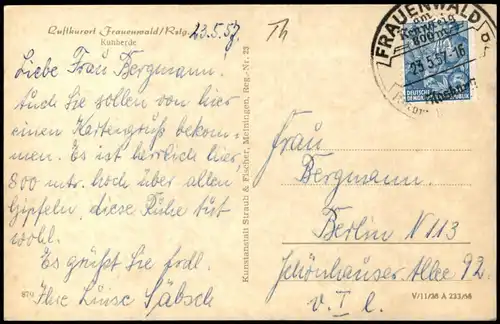 Luftkurort Frauenwald/Rstg.
Kuhherde
23.5.57.
Th
Liebe Frau Bergmann!
Auch Sie sollen von hier
einen Kartengruß bekom-
men. Es ist herrlich hier,
800 mtr. hoch über allen
Gipfeln, diese Ruhe tut
wohl.
Es grüßt Sie frdl.
Ihre Luise Säbsch
870
Kunstanstalt Straub & Fischer, Meiningen, Reg.-Nr. 23
FRAUENWALD
am
Rennsteig
800 m
23.5.57-16
DEUTSCHE
DEMOKRATISCHE REPUBLIK
Frau
Bergmann.
Berlin N 113
Schönhauser Allee 92
v. I l.
V/11/28 A 223/56